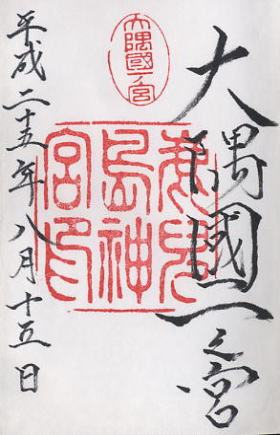 大隅國一之宮
大隅國一宮
鹿兒島神宮印
平成二十五年八月十五日